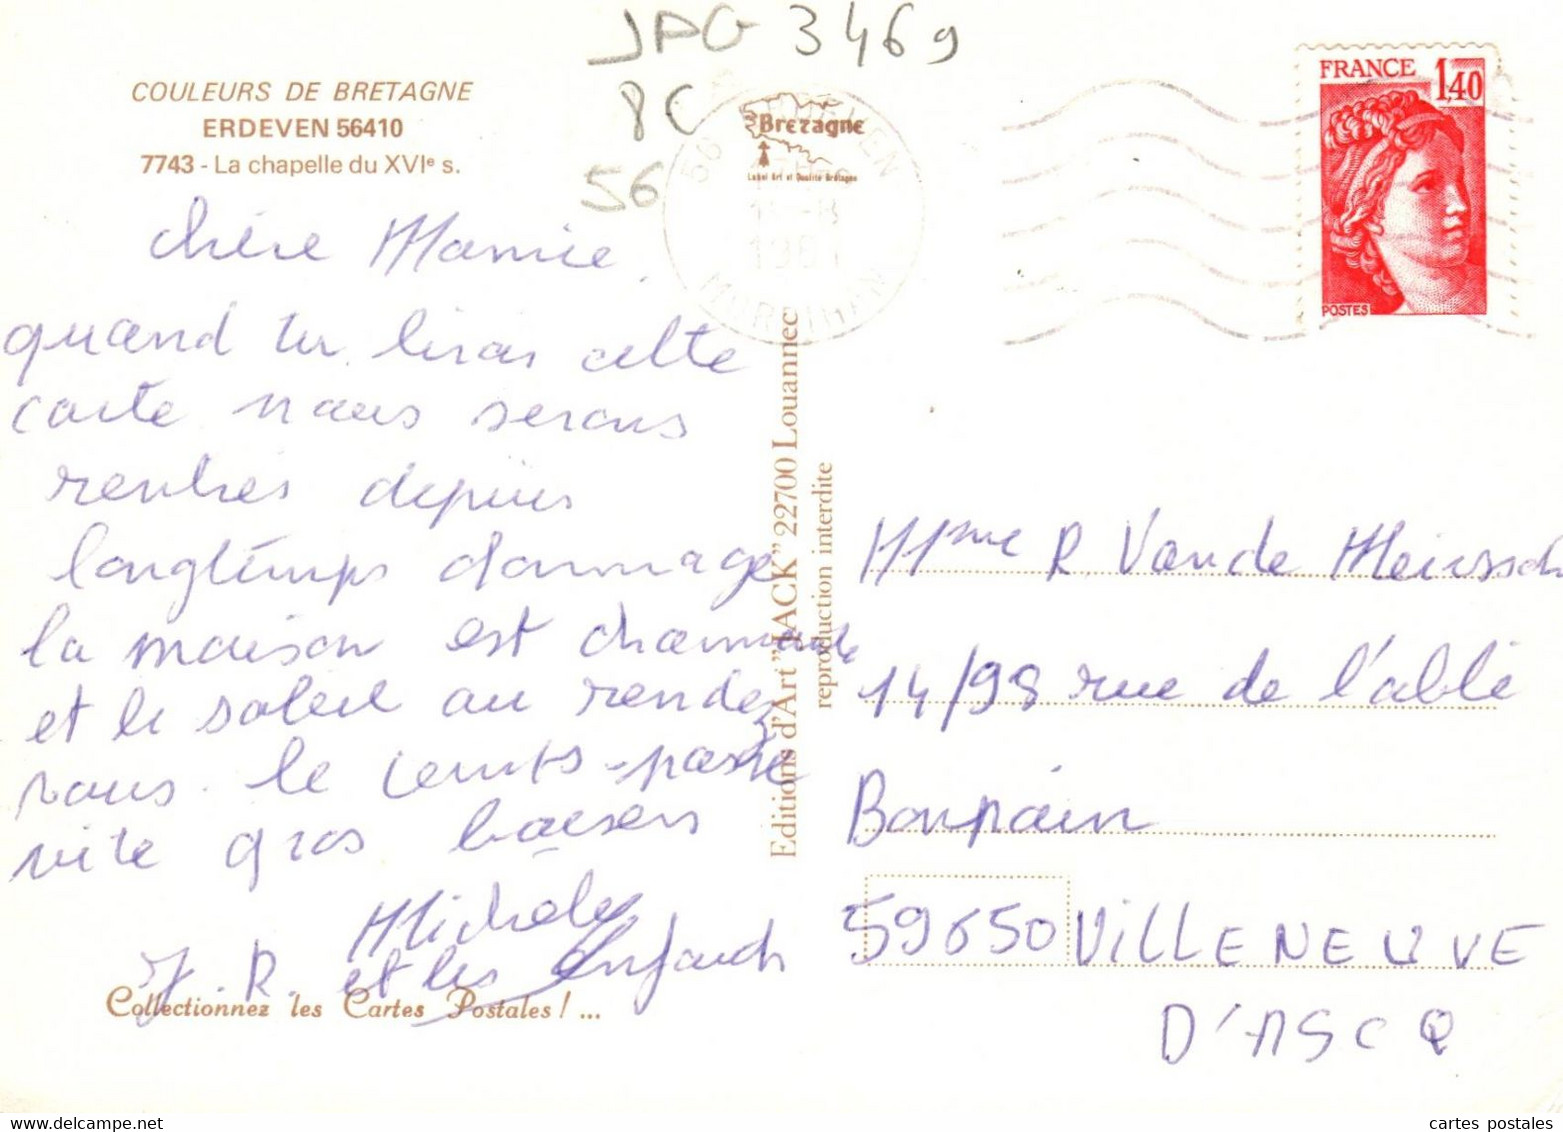 JPG 3469
8C
56
COULEURS DE BRETAGNE
ERDEVEN 56410
7743 - La chapelle du XVIe s.
Bretagne
Label Art et Qualité Bretagne
1981
MORBIHAN
FRANCE 1,40
POSTES
chère Mamie,
quand tu liras cette
carte nous serons
rentrés depuis
longtemps dommage
la maison est charmante
et le soleil au rendez
vous. le temps passe
vite gros baisers
Michele
J. R. et les Enfants
Collectionnez les Cartes Postales ! ...
Editions d'Art "JACK" 22700 Louannec
reproduction interdite
Mme R. Vande Meirssch
14/98 rue de l'abbé
Bonpain
59650 VILLENEUVE
D'ASCQ
cartes postales